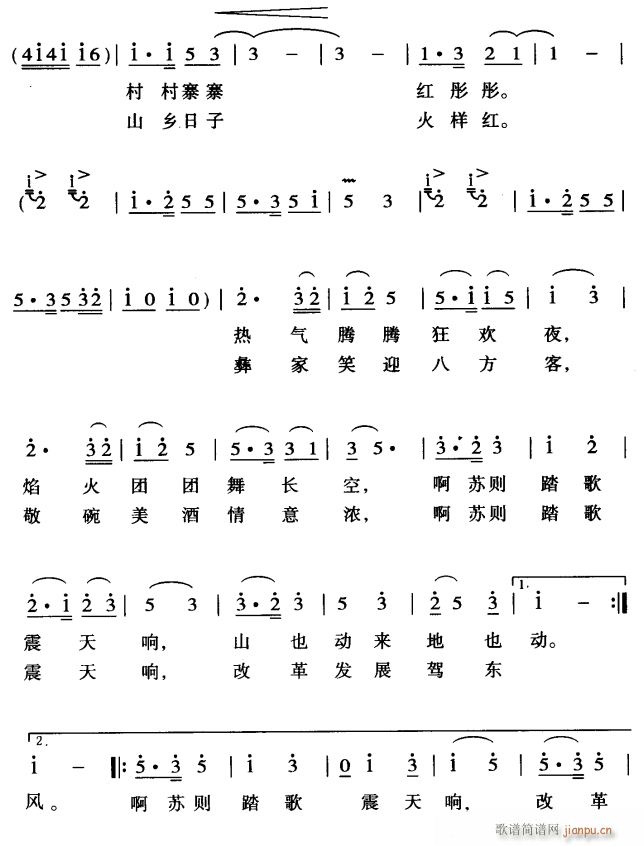 (4i4i i6) | i· i 5 3 | 3 – | 3 – | 1·3 2 1 | 1 – |
村 村寨寨 红 彤 彤。
山 乡日子 火 样 红。
(i>2 i>2 | i·2 5 5 | 5·3 5 i | 5 3 | i>2 i>2 | i·2 5 5 |
5·3 5 32 | i 0 i 0) | 2· 32 | i 2 5 | 5·i i 5 | i 3 |
热 气 腾 腾 狂 欢 夜,
彝 家 笑 迎 八 方 客,
2· 32 | i 2 5 | 5·3 3 1 | 3 5· | 3·2 3 | i 2 |
焰 火 团 团 舞 长 空, 啊 苏则 踏 歌
敬 碗 美 酒 情 意 浓, 啊 苏则 踏 歌
2·i 2 3 | 5 3 | 3·2 3 | 5 3 | 2 5 3 | 1. i – :‖
震 天 响, 山 也 动 来 地 也 动。
震 天 响, 改 革 发 展 驾 东
2. i – ‖: 5·3 5 | i 3 | 0 i 3 | i 5 | 5·3 5 |
风。 啊 苏 则 踏 歌 震 天 响, 改 革
歌谱简谱网 jianpu.cn